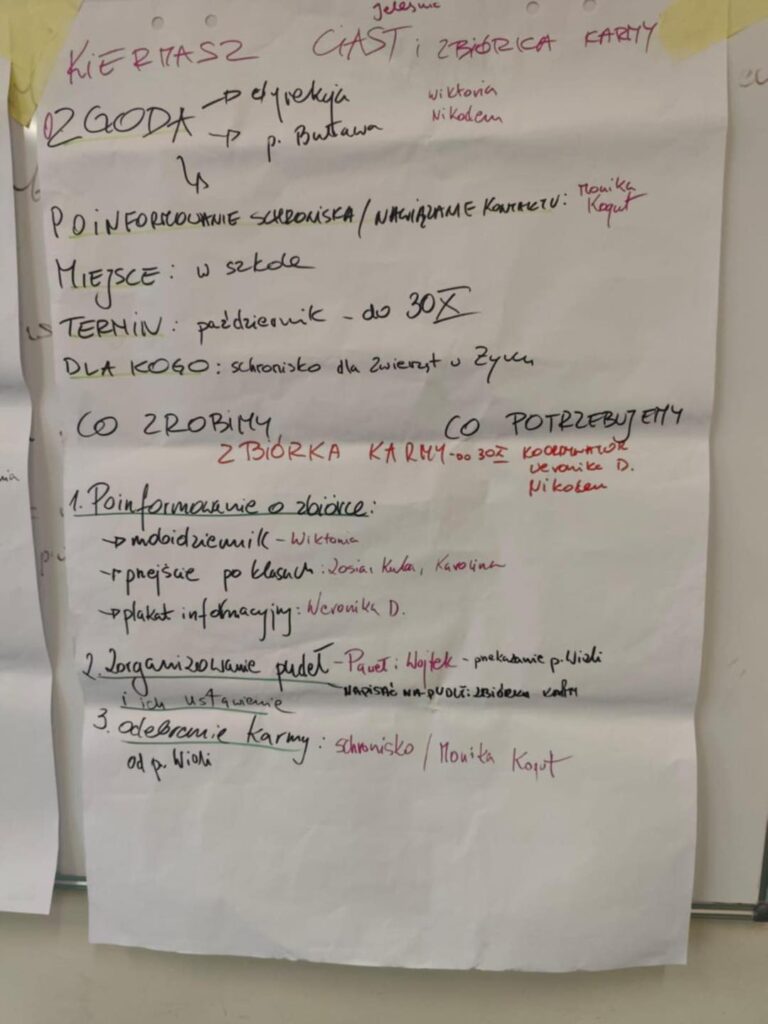 KIERMASZ CIAST i ZBIÓRKA KARMY
ZGODA → dyrekcja
→ p. Buława
Wiktoria
Nikodem
POINFORMOWANIE SCHRONISKA / NAWIĄZANIE KONTAKTU: Monika Kogut
MIEJSCE: w szkole
TERMIN: październik - do 30 X
DLA KOGO: schronisko dla zwierząt u
CO ZROBIMY CO POTRZEBUJEMY
ZBIÓRKA KARMY - DO 30X KOORDYNATOR
Weronika D.
Nikodem
1. Poinformowanie o zbiórce:
→ mobidziennik - Wiktoria
→ przejście po klasach: Zosia i Kuba, Karolina
→ plakat informacyjny: Weronika D.
2. Zorganizowanie pudeł - Paweł i Wojtek - przekazanie p. Wioli
i ich ustawienie NAPISAĆ NA PUDŁ: ZBIÓRKA KARM
3. odebranie karmy: schronisko / Monika Kogut
od p. Wioli